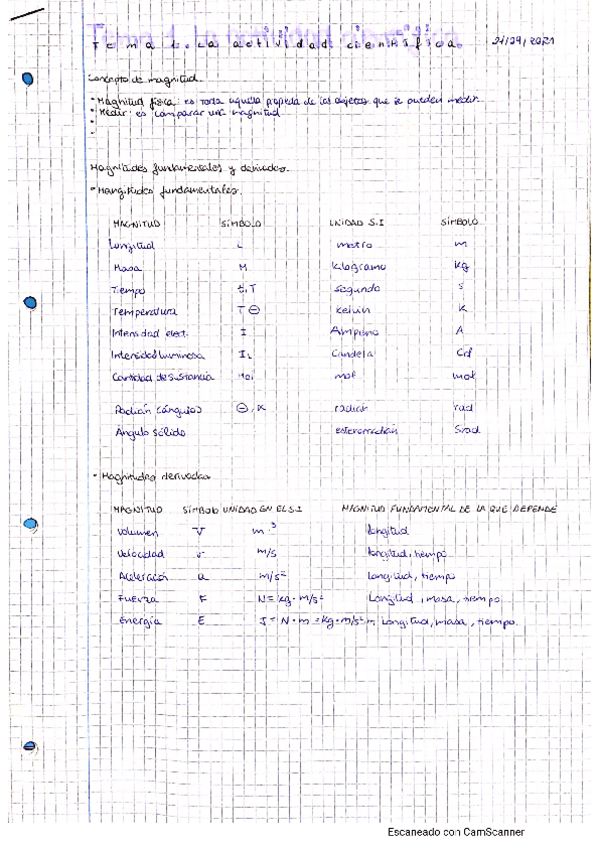 Tema 1: La actividad científica. 21/09/2021
Concepto de magnitud.
• Magnitud física: es toda aquella propieda de los objetos que se pueden medir.
• Medir: es comparar una magnitud
Magnitudes fundamentales y derivadas.
• Mangitudes fundamentales.
MAGNITUD SÍMBOLO UNIDAD S.I SÍMBOLO
Longitud L metro m
Masa M Kilogramo Kg
Tiempo t, T segundo s
Temperatura T Θ Kelvin K
Intensidad elect. I Amperio A
Intensidad luminosa IL Candela Cd
Cantidad de sustancia Mol mol mol
Radián (ángulos) Θ, α radian rad
Ángulo sólido estereorradián Srad
• Magnitudes derivadas
MAGNITUD SÍMBOLO UNIDAD EN EL S.I MAGNITUD FUNDAMENTAL DE LA QUE DEPENDE
Volumen V m³ longitud
Velocidad v m/s longitud, tiempo
Aceleración a m/s² Longitud, tiempo
Fuerza F N = Kg · m/s² Longitud, masa, tiempo
Energía E J = N · m = Kg · m/s² m Longitud, masa, tiempo.
Escaneado con CamScanner